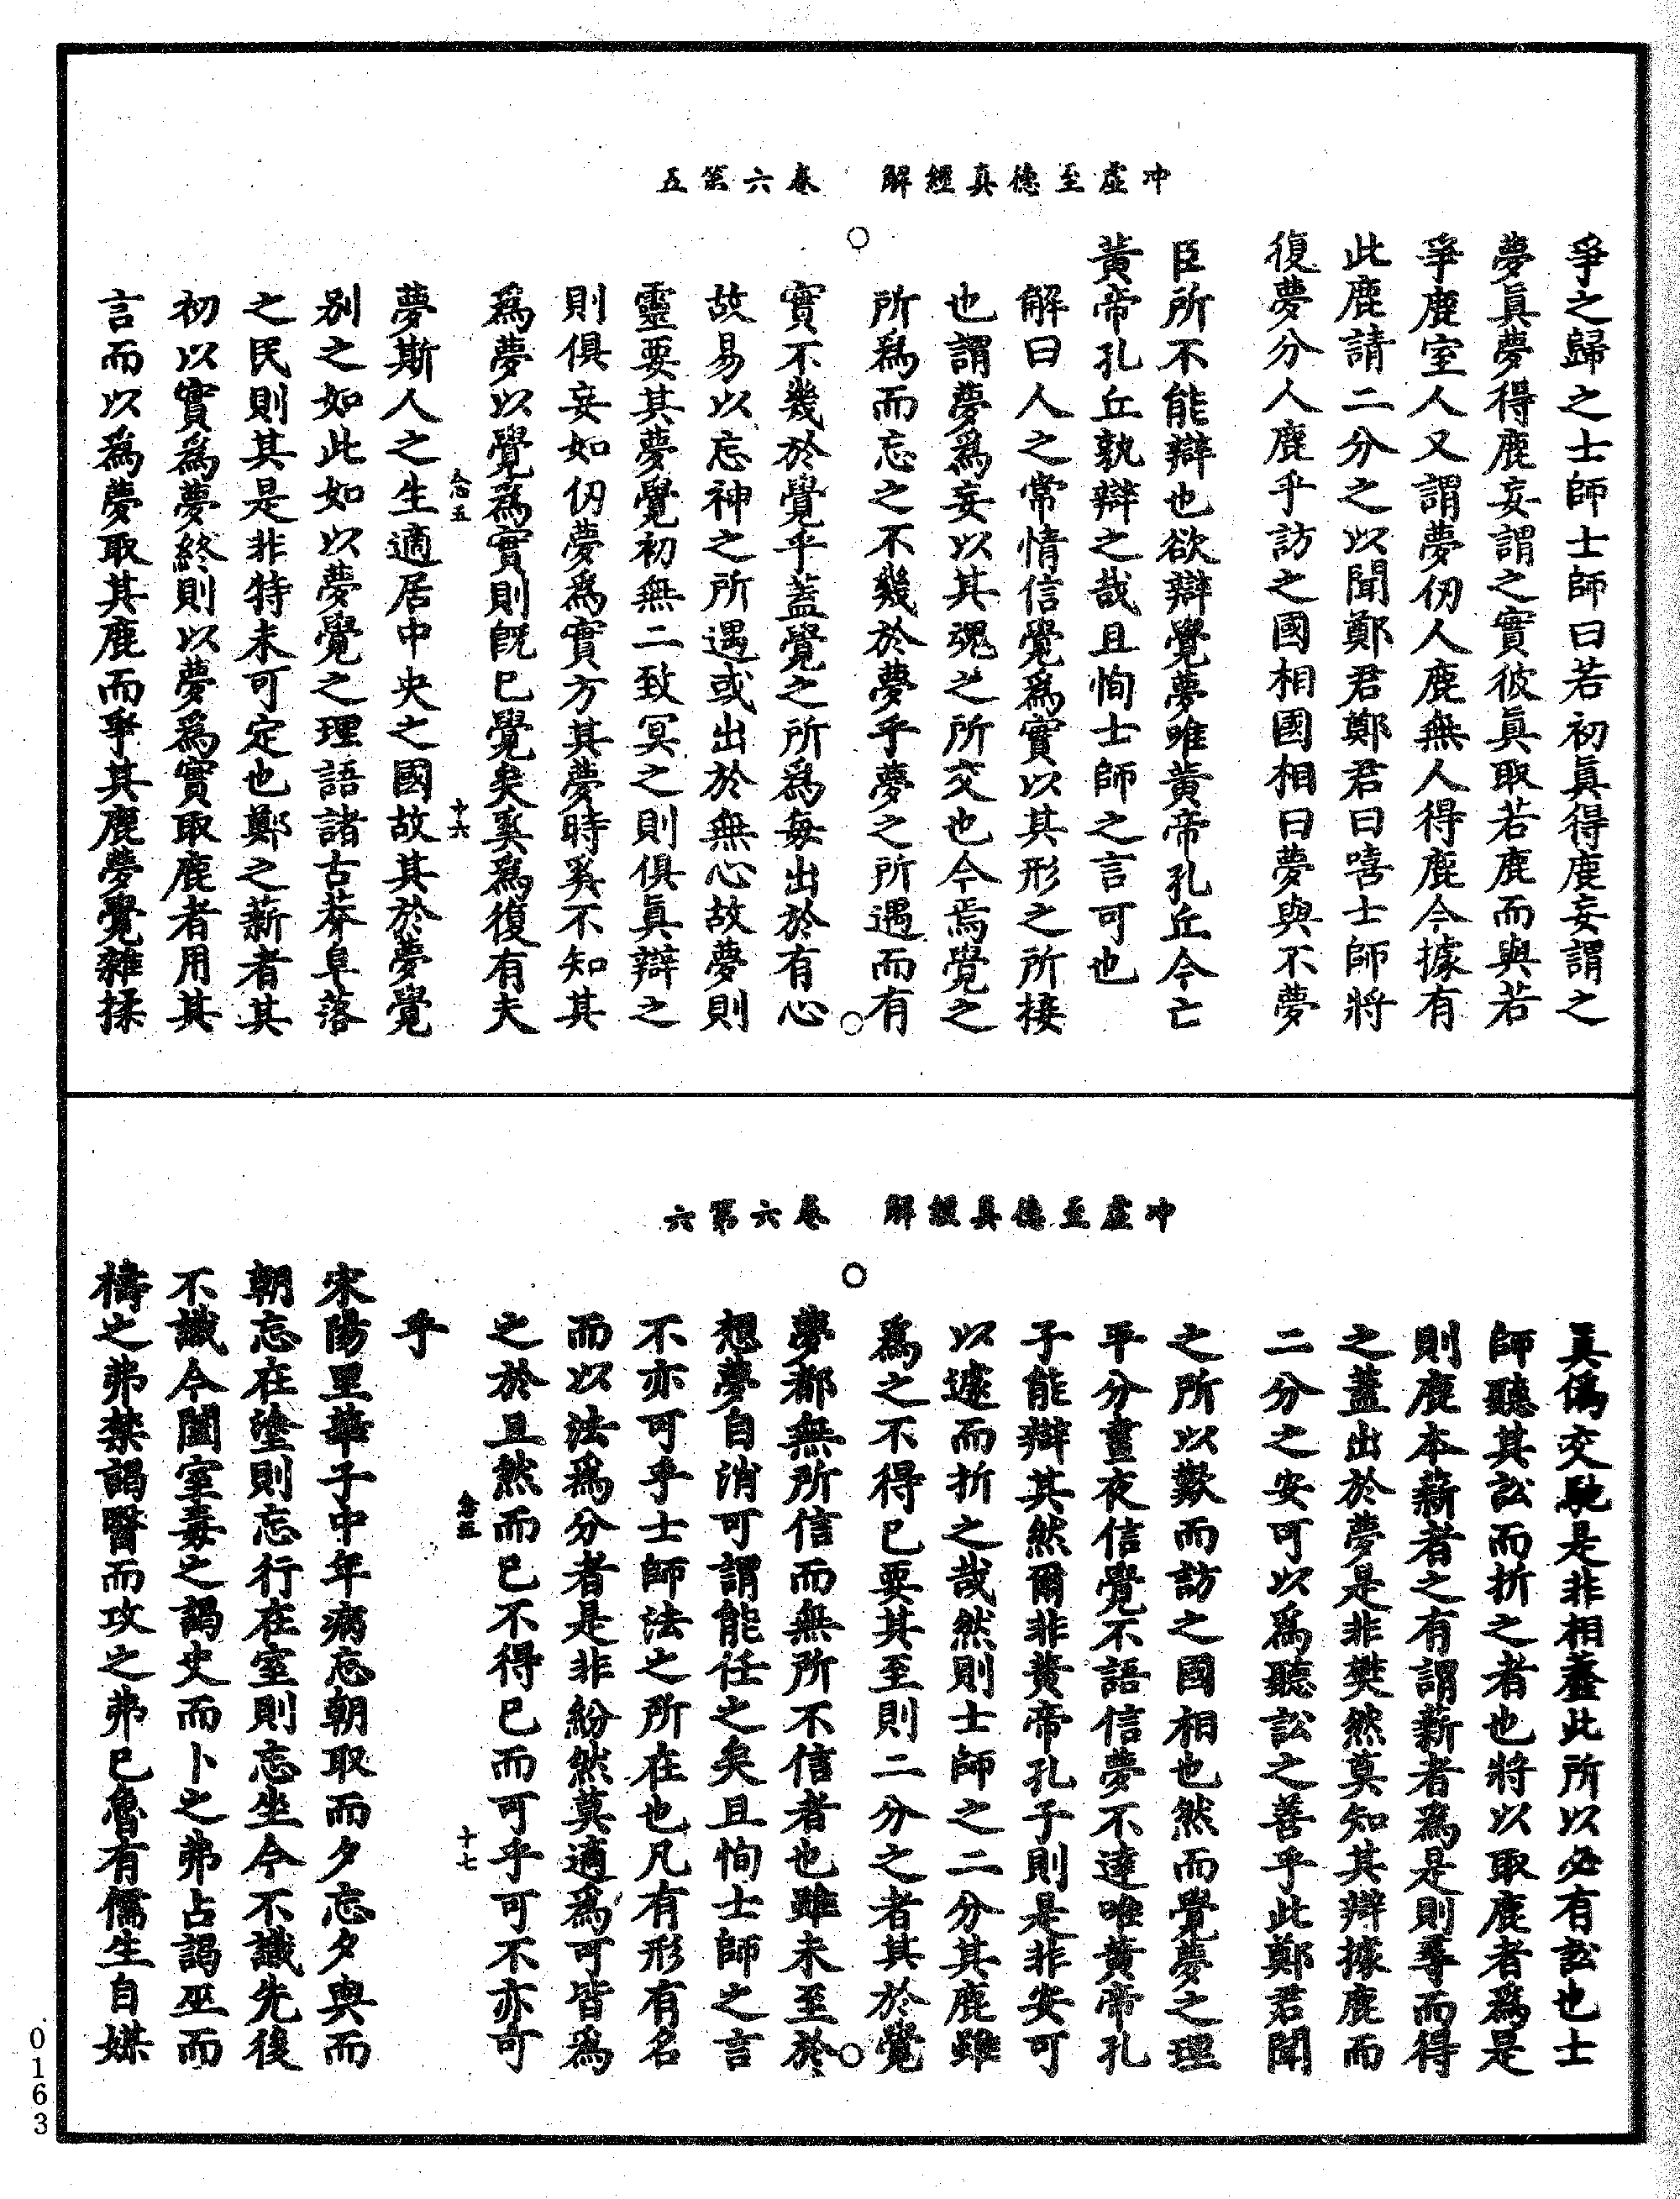 冲虛至德真經解　卷六第五
爭之歸之士師士師曰若初眞得鹿妄謂之
夢眞夢得鹿妄謂之實彼眞取若鹿而與若
爭鹿室人又謂夢仞人鹿無人得鹿今據有
此鹿請二分之以聞鄭君鄭君曰嘻士師將
復夢分人鹿乎訪之國相國相曰夢與不夢
臣所不能辯也欲辯覺夢唯黃帝孔丘今亡
黃帝孔丘孰辯之哉且恂士師之言可也
解曰人之常情信覺爲實以其形之所接
也謂夢爲妄以其魂之所交也今焉覺之
所爲而忘之不幾於夢乎夢之所遇而有
實不幾於覺乎蓋覺之所爲每出於有心
故易以忘神之所遇或出於無心故夢則
靈要其夢覺初無二致冥之則俱眞辯之
則俱妄如仞夢爲實方其夢時奚不知其
爲夢以覺爲實則旣已覺矣奚爲復有夫
夢斯人之生適居中央之國故其於夢覺
别之如此如以夢覺之理語諸古莽阜落
之民則其是非特未可定也鄭之薪者其
初以實爲夢終則以夢爲實取鹿者用其
言而以爲夢取其鹿而爭其鹿夢覺雜揉
十六
冲虛至德真經解　卷六第六
眞僞交馳是非相蓋此所以必有訟也士
師聽其訟而折之者也將以取鹿者爲是
則鹿本薪者之有謂薪者爲是則尋而得
之蓋出於夢是非樊然莫知其辯據鹿而
二分之安可以爲聽訟之善乎此鄭君聞
之所以歎而訪之國相也然而覺夢之理
平分晝夜信覺不語信夢不達唯黃帝孔
子能辯其然爾非黃帝孔子則是非安可
以遽而折之哉然則士師之二分其鹿雖
爲之不得已要其至則二分之者其於覺
夢都無所信而無所不信者也雖未至於
想夢自消可謂能任之矣且恂士師之言
不亦可乎士師法之所在也凡有形有名
而以法爲分者是非紛然莫適爲可皆爲
之於且然而已不得已而可乎可不亦可
乎
宋陽里華子中年病忘朝取而夕忘夕與而
朝忘在塗則忘行在室則忘坐今不識先後
不識今闔室毒之謁史而卜之弗占謁巫而
禱之弗禁謁醫而攻之弗已魯有儒生自媒
十七
0163